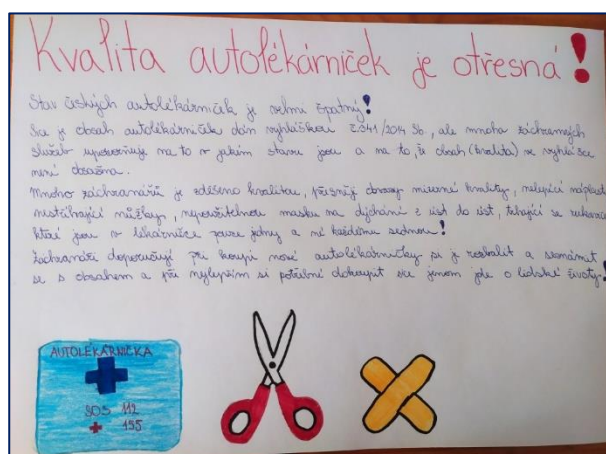 Kvalita autolékárniček je otřesná!
Stav českých autolékárniček je velmi špatný!
je obsah autolékárniček dán vyhláškou č.341/2014 Sb, ale mnoho záchranných
služeb upozorňuje na to v jakém stavu jsou a na to, že obsah (kvalita) ve vyhlášce
není obsažna.
Mnoho záchranářů je zděšeno kvalitou, přesněji obvazy mizerné kvality, nelepící náplasti
nestříhající nůžky, nepoužitelnou masku na dýchání z úst do úst, trhající se rukavice
které jsou v lékárničce pouze jedny a né každému sednou!
Záchranáři doporučují při koupi nové autolékárničky si ji rozbalit a seznámit
se s obsahem a při nejlepším si potřebné dokoupit jde o lidské životy!
AUTOLEKÁRNIČKA
SOS 112
155